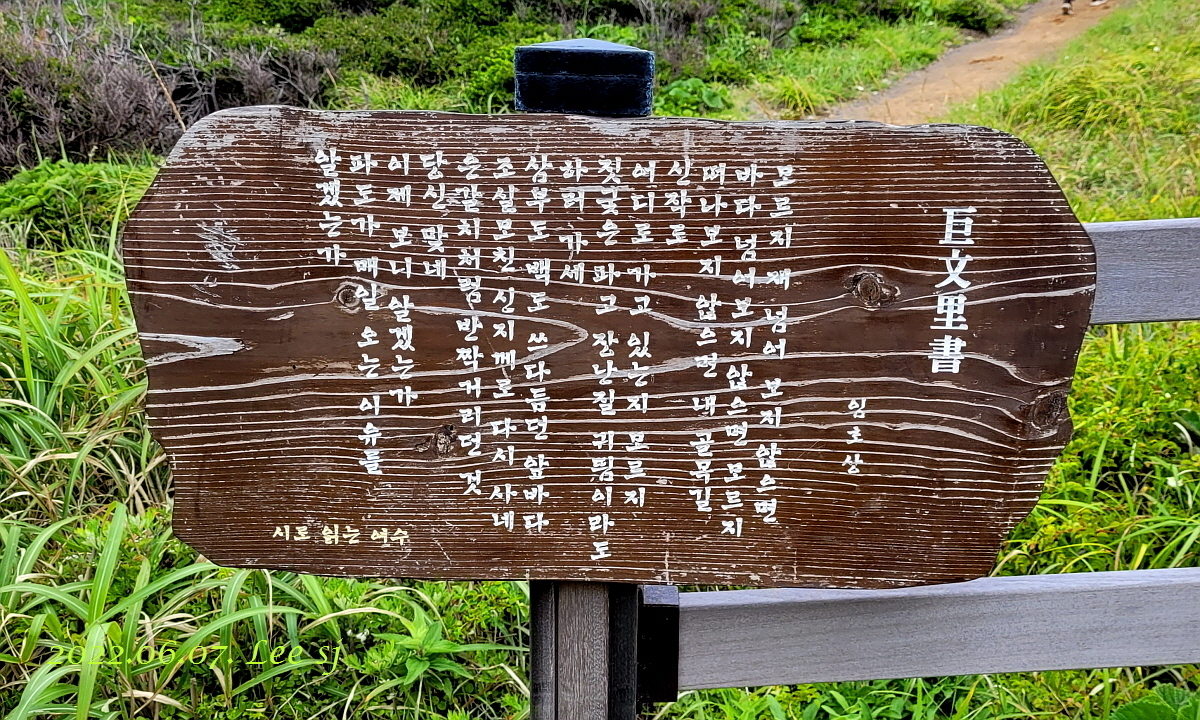 巨文里書
임호상
모르지 재 넘어 보지 않으면
바다 넘어보지 않으면 모르지
떠나보지 않으면 내 골목길
신작로
어디로 가고 있는지 모르지
짓궂은 파고 장난질 귀띔이라도
하러 가세
삼부도 백도 쓰다듬던 앞바다
조실모친 신지께로 다시 사네
은갈치처럼 반짝거리던 것
당신 맞네
이제 보니 알겠는가
파도가 매일 오는 이유를
알겠는가
시로 읽는 여수
2022.06.07. Lee sj